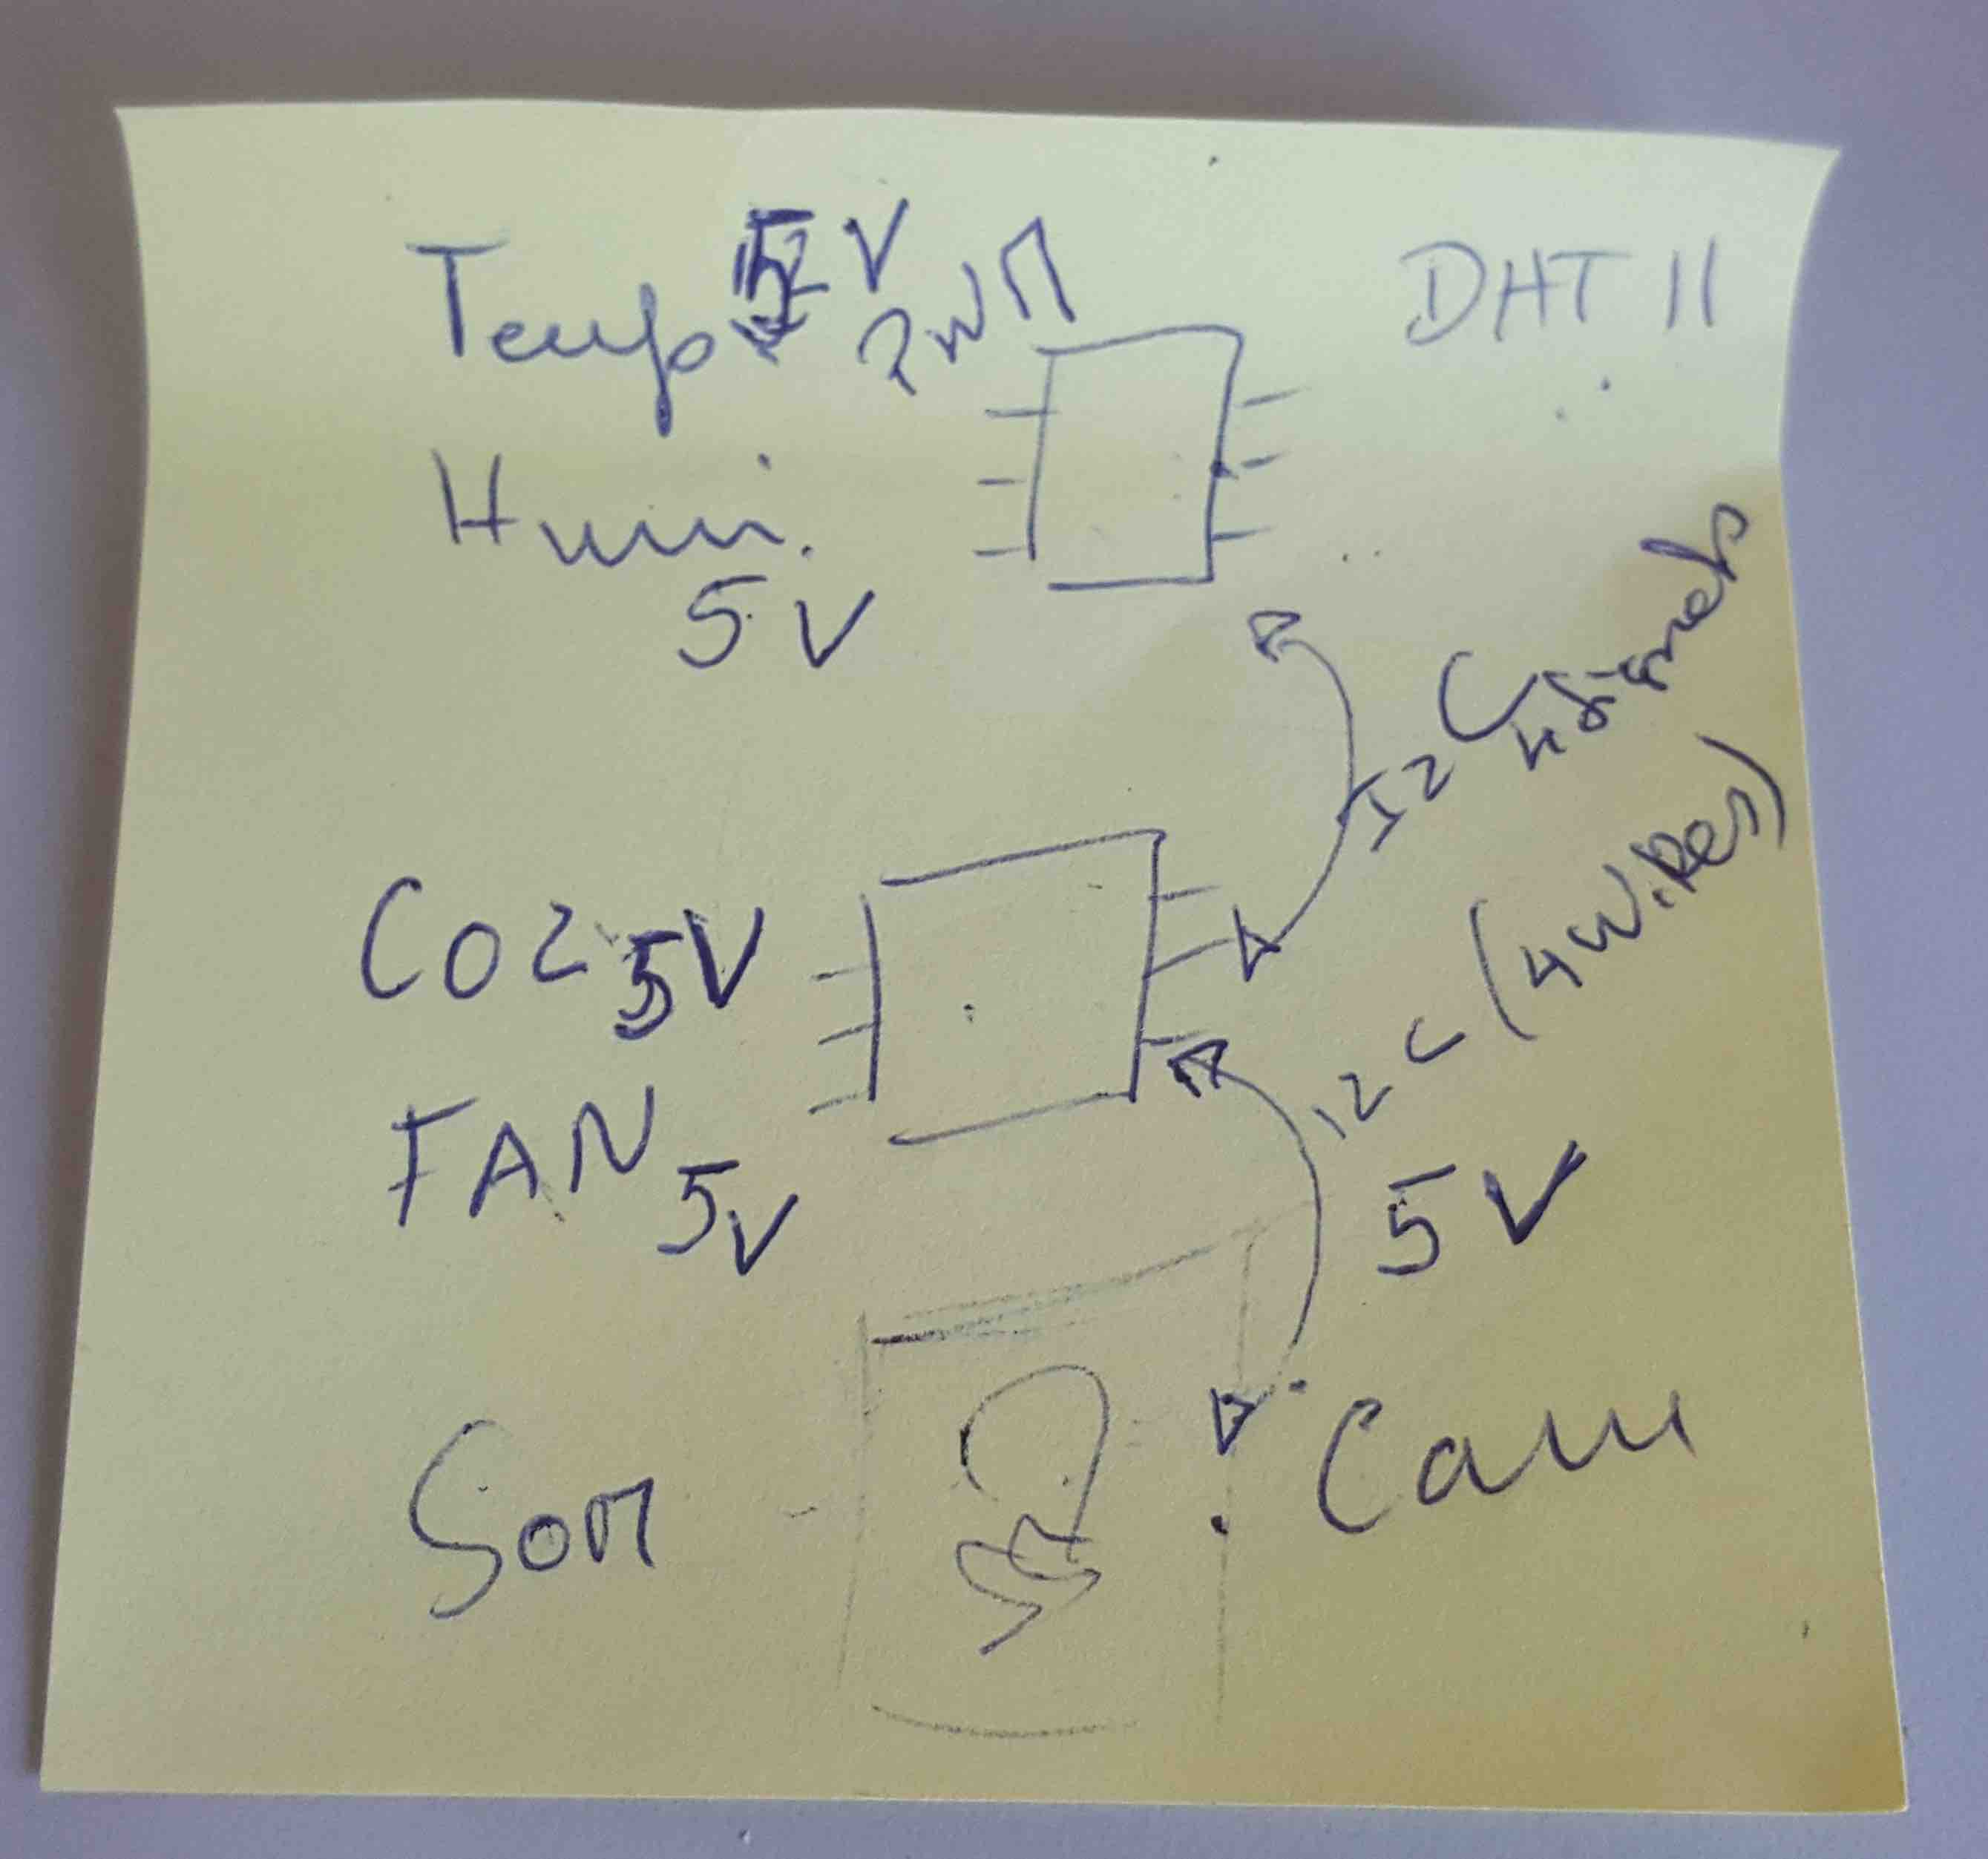 Temp 5V
DHT 11
Humi.
5V
I2C 4 signals
CO2 5V
I2C (4 WiRes)
FAN 5V
5V
Son
Cam